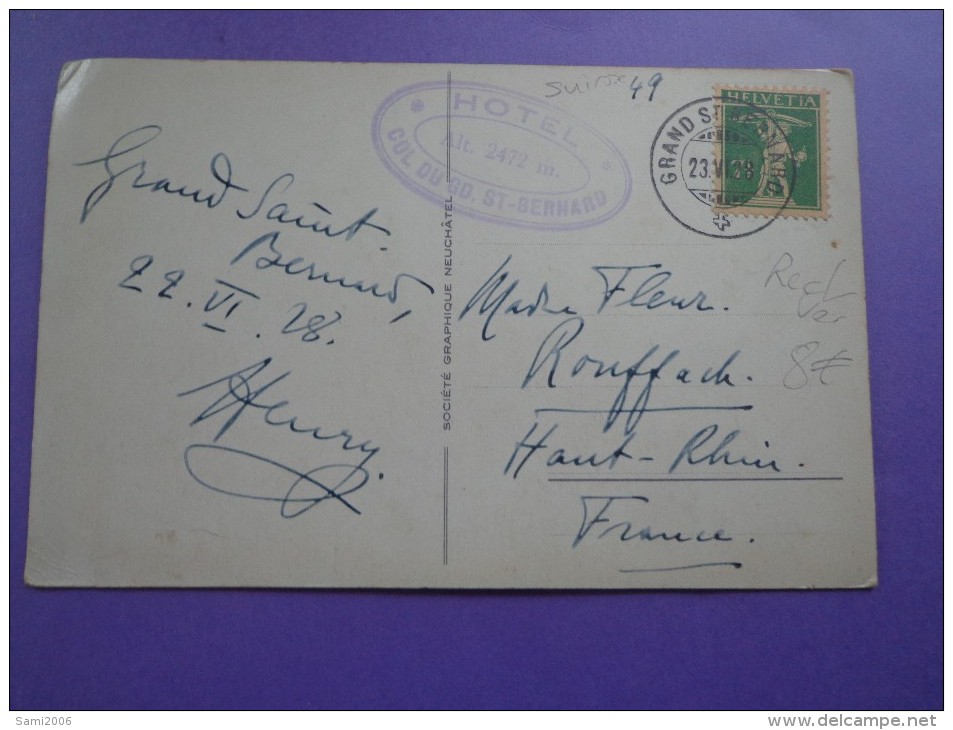 suisse 49
HOTEL
Alt. 2472 m.
COL DU GD. ST-BERNARD
HELVETIA
GRAND ST. BERNARD
23.VI.28
Grand Saint.
Bernard,
22.VI.28.
Henry.
SOCIÉTÉ GRAPHIQUE NEUCHÂTEL
Fleur.
Rouffach.
Haut-Rhin.
France.
8€
Sami2006
delcampe.net